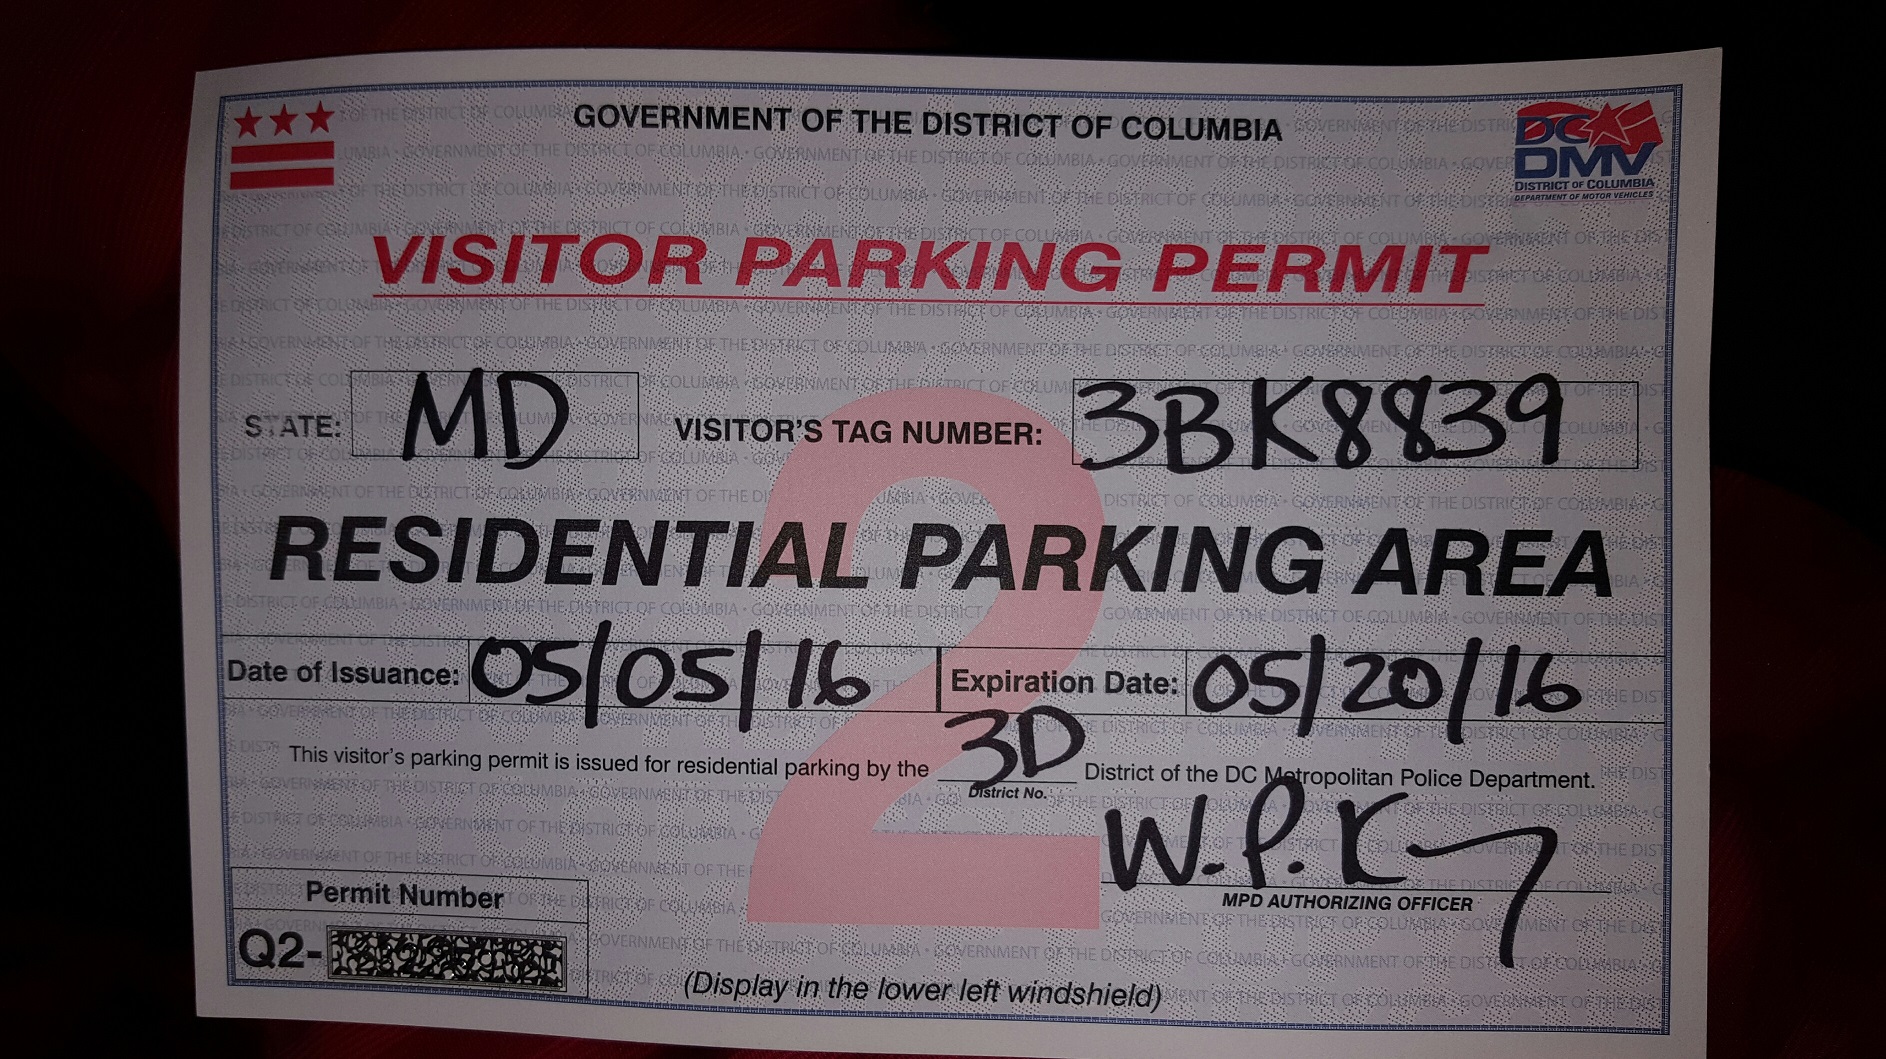 GOVERNMENT OF THE DISTRICT OF COLUMBIA
DC
DMV
DISTRICT OF COLUMBIA
DEPARTMENT OF MOTOR VEHICLES
VISITOR PARKING PERMIT
STATE: MD VISITOR'S TAG NUMBER: 3BK8839
2
RESIDENTIAL PARKING AREA
Date of Issuance: 05/05/16 Expiration Date: 05/20/16
This visitor's parking permit is issued for residential parking by the 3D District of the DC Metropolitan Police Department.
District No.
W.P.K
MPD AUTHORIZING OFFICER
Permit Number
Q2-
(Display in the lower left windshield)